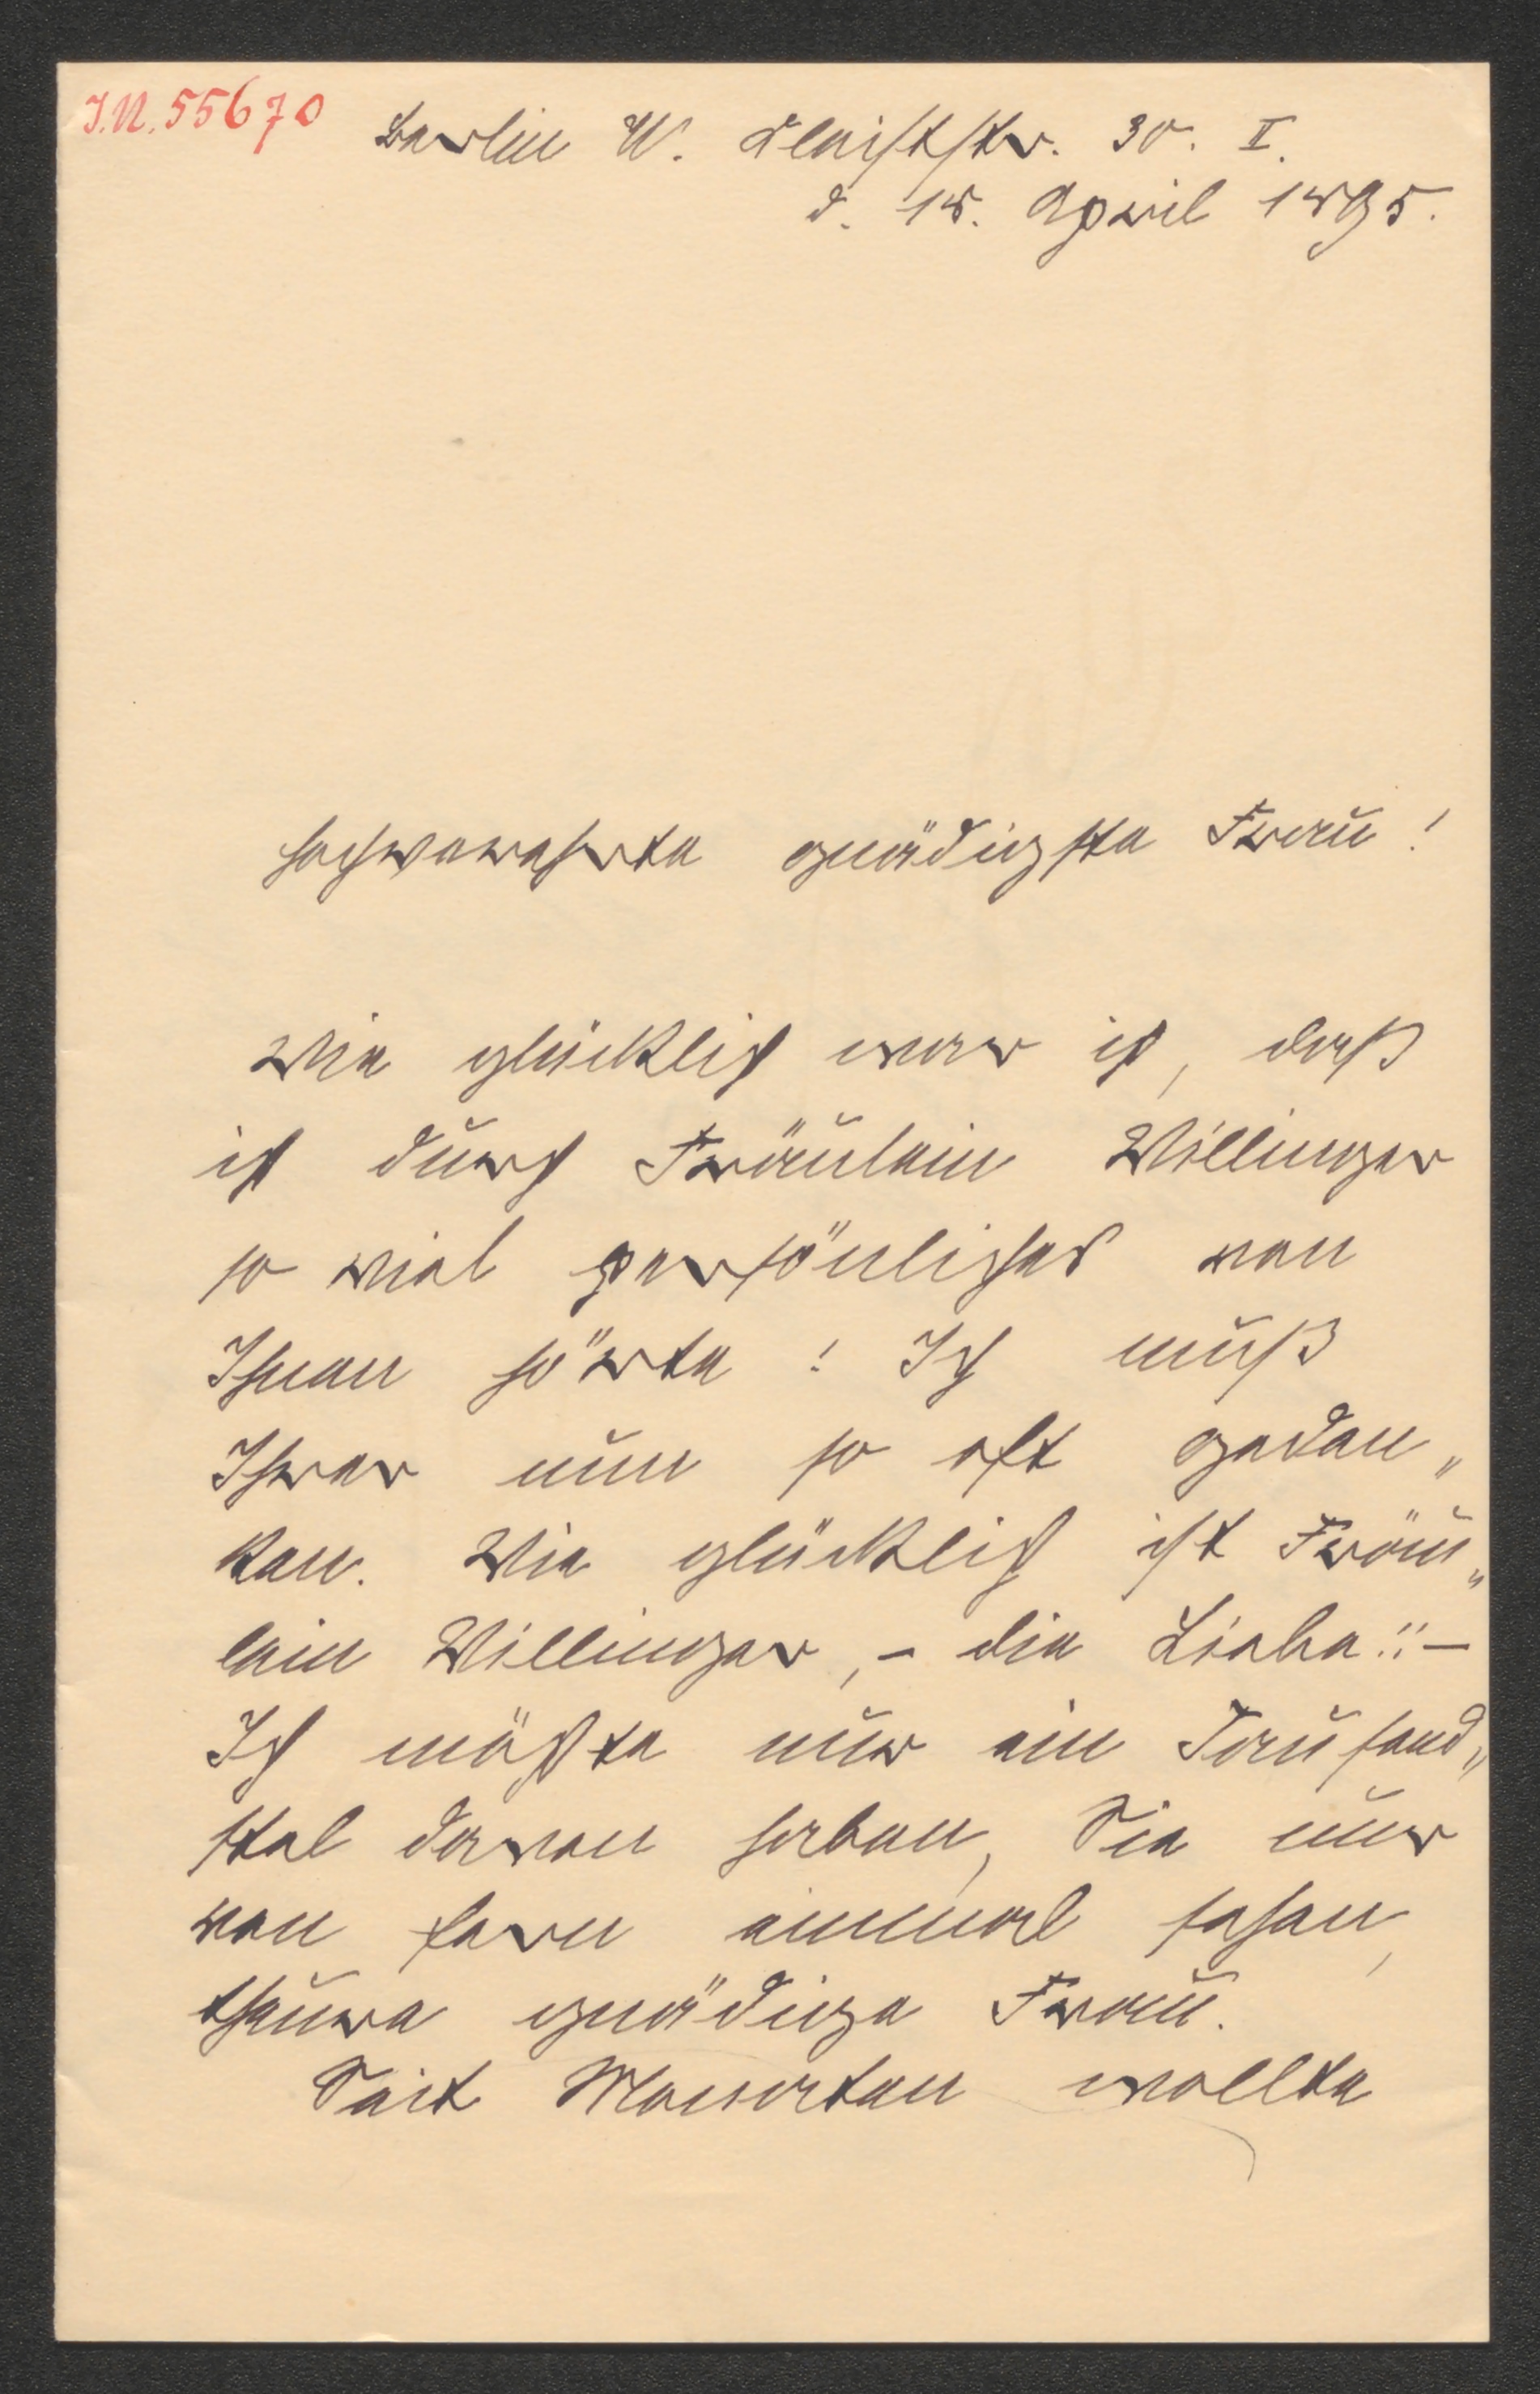 J.N. 55670
Berlin W. Kleiststr. 30. I.
d. 18. April 1895.
Hochverehrte gnädigste Frau!
Wie glücklich war ich, daß
ich durch Fräulein Villinger
so viel persönliches von
Ihnen hörte! Ich muß
Ihrer nun so oft geden„
ken. Wie glücklich ist Fräu„
lein Villinger, – die Liebe!! –
Ich möchte nur ein Tausend„
stel davon haben, Sie nur
von fern einmal sehen,
theure gnädige Frau.
Seit Monaten wollte